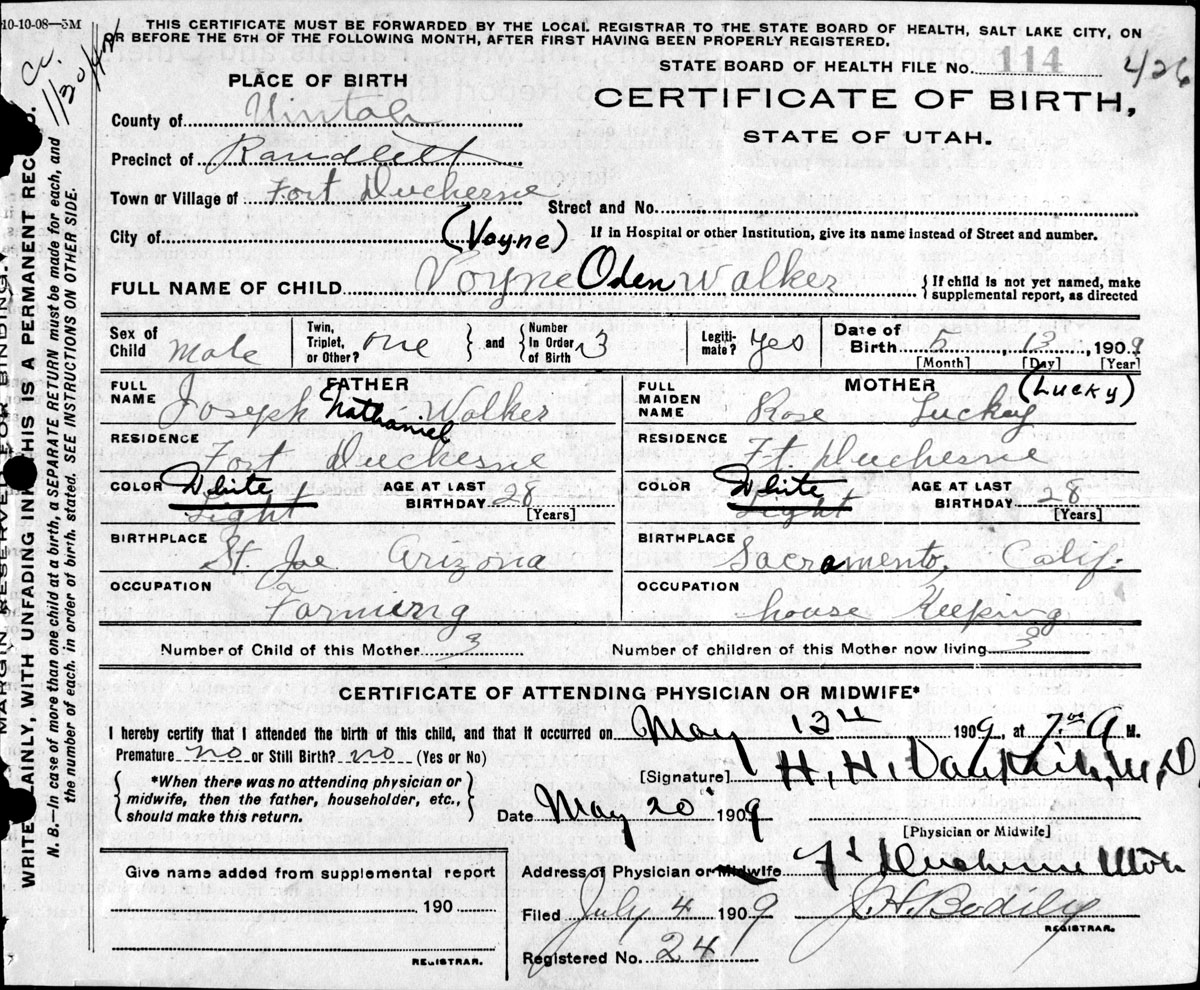 10-10-08—5M
THIS CERTIFICATE MUST BE FORWARDED BY THE LOCAL REGISTRAR TO THE STATE BOARD OF HEALTH, SALT LAKE CITY, ON
OR BEFORE THE 5TH OF THE FOLLOWING MONTH, AFTER FIRST HAVING BEEN PROPERLY REGISTERED.
STATE BOARD OF HEALTH FILE No. 114 426
PLACE OF BIRTH
CERTIFICATE OF BIRTH,
STATE OF UTAH.
County of Uintah
Precinct of Randlett
Town or Village of Fort Duchesne
Street and No.
City of (Voyne)
If in Hospital or other Institution, give its name instead of Street and number.
FULL NAME OF CHILD Voyne Oden Walker
{If child is not yet named, make
supplemental report, as directed
Sex of Child Male
Twin, Triplet, or Other? one } and { Number In Order of Birth 3
Legiti-mate? Yes
Date of Birth 5, 13, 1909
[Month] [Day] [Year]
FATHER
FULL NAME Joseph Nathaniel Walker
RESIDENCE Fort Duchesne
COLOR White Light
AGE AT LAST BIRTHDAY 28 [Years]
BIRTHPLACE St. Joe Arizona
OCCUPATION Farming
MOTHER
FULL MAIDEN NAME Rose Luckey (Lucky)
RESIDENCE Ft. Duchesne
COLOR White Light
AGE AT LAST BIRTHDAY 28 [Years]
BIRTHPLACE Sacramento, Calif.
OCCUPATION house Keeping
Number of Child of this Mother 3
Number of children of this Mother now living 3
CERTIFICATE OF ATTENDING PHYSICIAN OR MIDWIFE*
I hereby certify that I attended the birth of this child, and that it occurred on May 13th 1909, at 7 a M.
Premature no or Still Birth? no (Yes or No)
{*When there was no attending physician or
midwife, then the father, householder, etc.,
should make this return.}
[Signature] H. H. M.D
Date May 20 1909
[Physician or Midwife]
Give name added from supplemental report
190
REGISTRAR.
Address of Physician or Midwife Ft Duchesne Utah
Filed July 4 1909 J. H. Bodily
REGISTRAR.
Registered No. 24
MARGIN RESERVED FOR BINDING.
WRITE PLAINLY, WITH UNFADING INK—THIS IS A PERMANENT RECORD.
N. B.—In case of more than one child at a birth, a SEPARATE RETURN must be made for each, and
the number of each, in order of birth, stated. SEE INSTRUCTIONS ON OTHER SIDE.